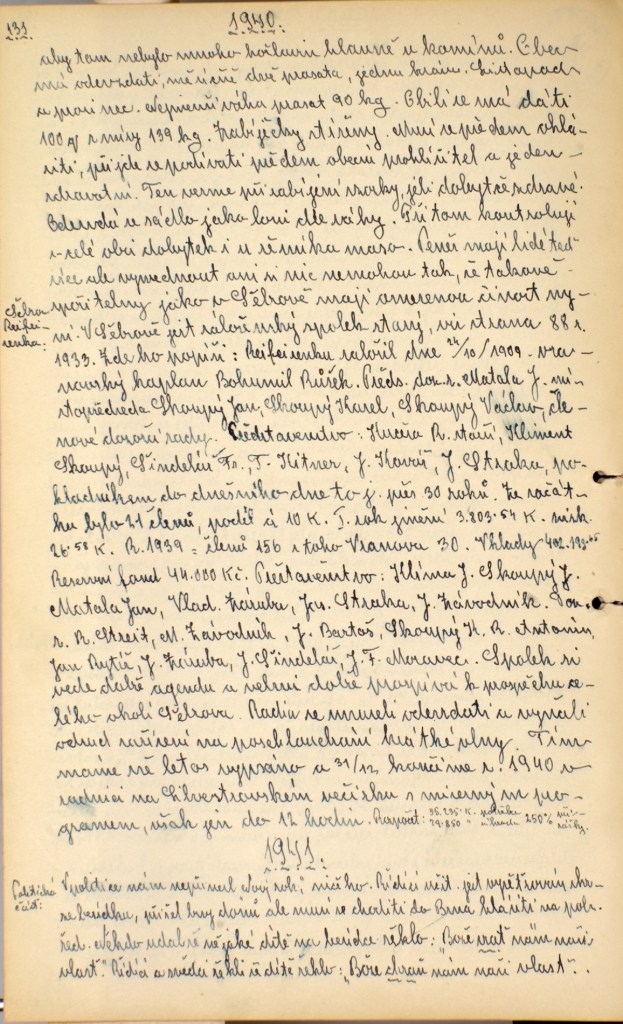 131.
1940.
aby tam nebylo mnoho hořlavin hlavně u komínů. Obec
má odevzdati, měsíčně dvě prasata, jednu krávu. Listopad
a prosinec. Nejmenší váha prasat 90 kg. Obilí se má dáti
100 q z míry 139 kg. Zabíječky ztíženy. Musí se předem ohlá-
siti, přijde se podívati předem obecní prohlížitel a jeden
zdravotní. Ten vezme při zabíjení vzorky, jeli dobytče zdravé.
Odevzdá se sádlo jako loni dle váhy. Při tom kontrolují
v celé obci dobytek i u řezníka maso. Peněz mají lidé teď
více ale vymednout ani si nic nemohou tak, že takové
spořitelny jako v Sěbrově mají omezenou činost ny-
Sěbrov
Reifei-
senka:
ní. V Sěbrově jest záloženský spolek starý, viz strana 88 r.
1933. Zde ho popíši: Reifeisenku založil dne 24/10/1909. vra-
novský kaplan Bohumil Růžek. Předs. doz. r. Matala J. mí-
stopředseda Skoupý Jan, Skoupý Karel, Skoupý Václav, čle-
nové dozorčí rady. Představenstvo: Kučera R. starší, Kliment
Skoupý, Šindelář Fr., T. Kitner, J. Kovář, J. Straka, po-
kladníkem do dnešního dne to j. přes 30 roků. Ze začát-
ku bylo 21 členů, podíl à 10 K. I. rok jmění 3.803.54 K. zisk
26.58 K. R. 1939 = členů 156 z toho Vranova 30. Vklady
Reservní fond 44.000 Kč. Představenstvo: Klíma J. Skoupý J.
Matala Jan, Vlad. Záruba, Jos. Straka, J. Závodník. Doz.
r. R. Streit, M. Závodník, J. Bartoš, Skoupý K. R. Antonín,
Jan Rytíř, J. Záruba, J. Šindelář, J. F. Moravec. Spolek si
vede dobře agendu a velmi dobře prospívá k prospěchu ce-
lého okolí Sěbrova. Radia se museli odevzdati a vyňali
odtud zařízení na poslouchání krátké vlny. Tím
máme vše letos vypsáno a 31/12 končíme r. 1940 v
radnici na Silvestrovském večírku s mírným pro-
gramem, však jen do 12 hodin. Rozpočet: 35.235 K. potřeba
29.850 " úhrada 250% při-
rážky.
1941.
Politická
část:
V politice nám nepřinesl "Nový rok", ničeho. Řídící učit. jest vyšetřován
za besídku, přišel brzy domů ale musí se choditi do Brna hlásiti na pol.
řed. Někdo udal že nějaké dítě na besídce řeklo: "Bože vrať nám naši
vlasť." Řídící a svědci řekli že dítě řeklo: "Bože chraň nám naši vlasť".